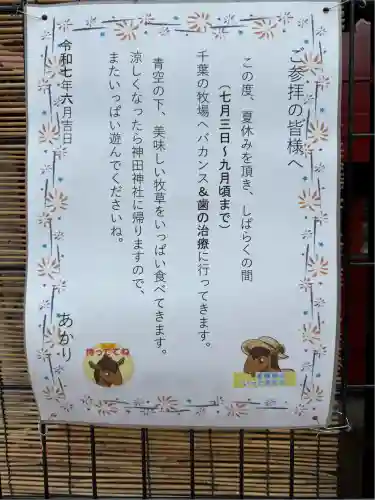 ご参拝の皆様へ
この度、夏休みを頂き、しばらくの間
(七月三日〜九月頃まで)
千葉の牧場へバカンス&歯の治療に行ってきます。
青空の下、美味しい牧草をいっぱい食べてきます。
涼しくなったら神田神社に帰りますので、
またいっぱい遊んでくださいね。
令和七年六月吉日
あかり
待っててね